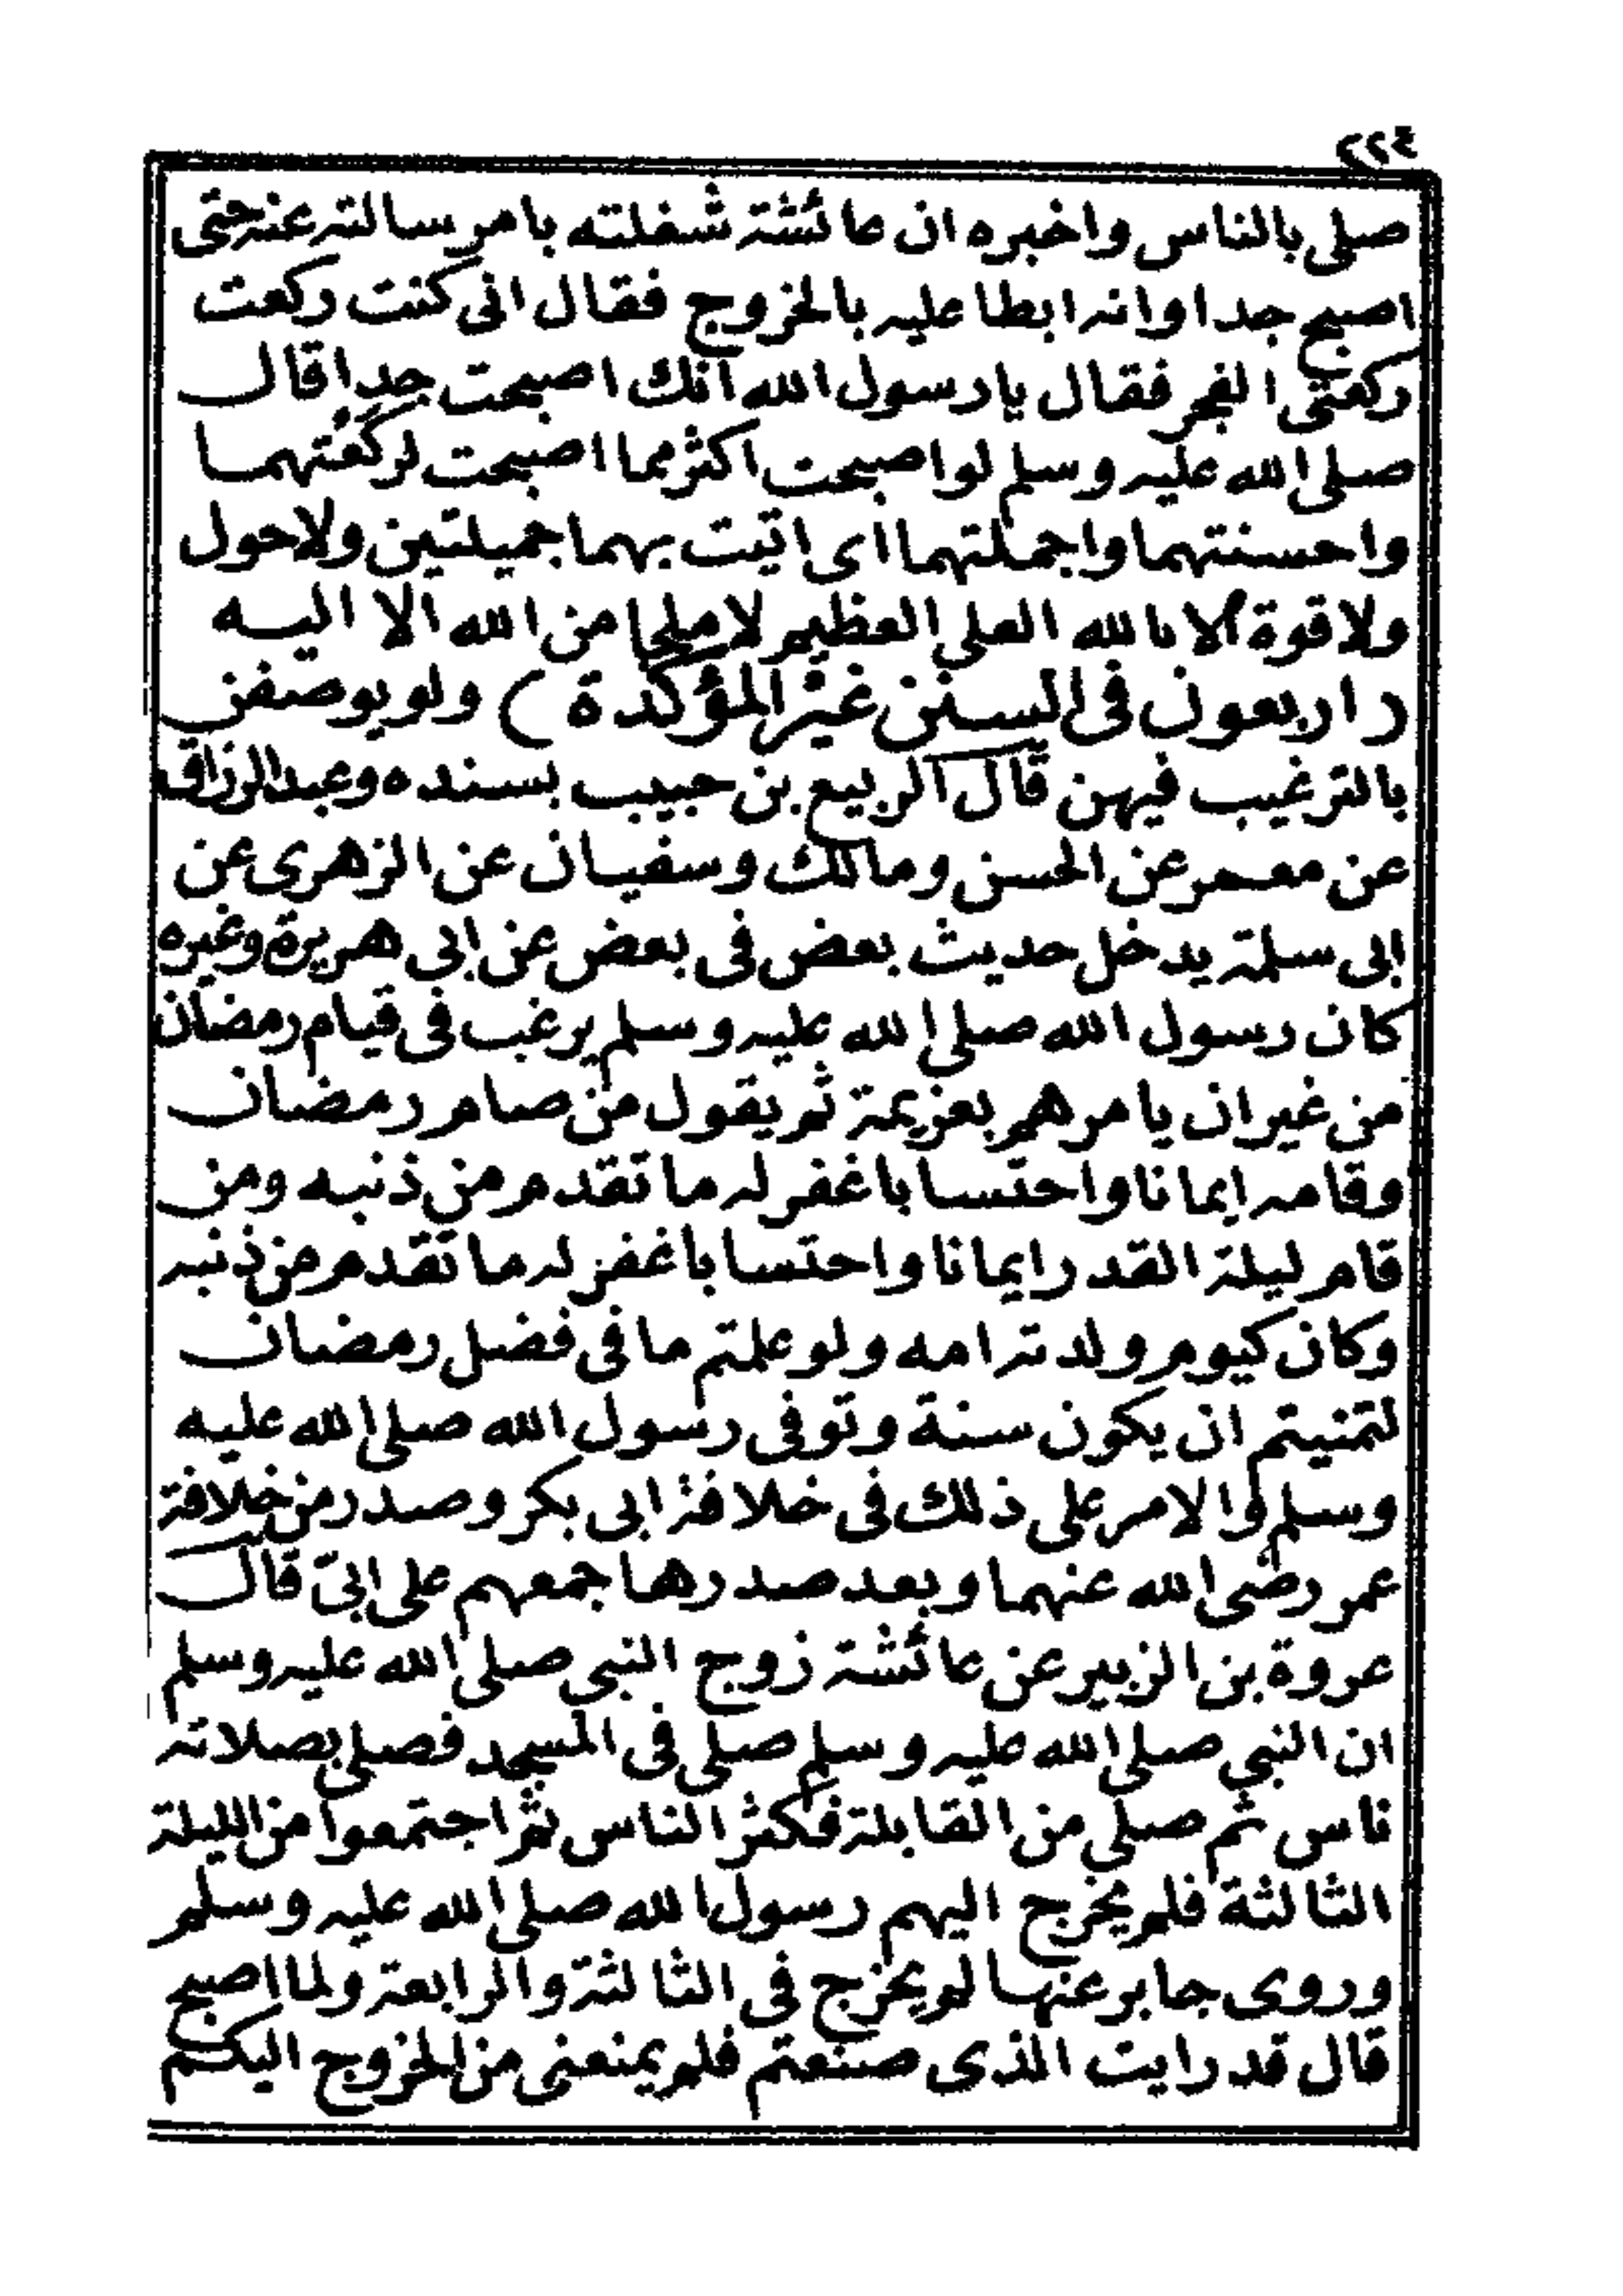 ٢٢٤
صلى بالناس واخبره ان عائشة شغلته بامر سالته عنه حتى
اصبح جدا وانه ابطا عليه بالخروج فقال انى كنت ركعت
ركعتى الفجر فقال يا رسول الله انك اصبحت جدا قال
صلى الله عليه وسلم لو اصبحت اكثر مما اصبحت لركعتهما
واحسنتهما واجملتهما اى اتيت بهما جميلتين ولا حول
ولا قوة الا بالله العلى العظيم لا ملجا من الله الا اليه
( اربعون فى السنن غير المؤكدة ) ولو بوصفن
بالترغيب فيهن قال الربيع بن حبيب بسنده وعبد الرزاق
عن معمر عن الحسن ومالك وسفيان عن الزهرى عن
ابى سلمة يدخل حديث بعض فى بعض عن ابى هريرة وغيره
كان رسول الله صلى الله عليه وسلم يرغب فى قيام رمضان
من غير ان يامرهم بعزيمة ثم يقول من صام رمضان
وقامه ايمانا واحتسابا غفر له ما تقدم من ذنبه ومن
قام ليلة القدر ايمانا واحتسابا غفر له ما تقدم من ذنبه
وكان كيوم ولدته امه ولو علمتم ما فى فضل رمضان
لتمنيتم ان يكون سنة وتوفى رسول الله صلى الله عليه
وسلم والامر على ذلك فى خلافة ابى بكر وصدر من خلافة
عمر رضى الله عنهما وبعد صدرها جمعهم على ابىّ قال
عروة بن الزبير عن عائشة زوج النبى صلى الله عليه وسلم
ان النبي صلى الله عليه وسلم صلى فى المسجد فصلى بصلاته
ناس ثم صلى من القابلة فكثر الناس ثم اجتمعوا من الليلة
الثالثة فلم يخرج اليهم رسول الله صلى الله عليه وسلم
وروى جابر عنها لم يخرج فى الثالثة والرابعة ولما اصبح
قال قد رايت الذى صنعتم فلم يمنعنى من الخروج اليكم